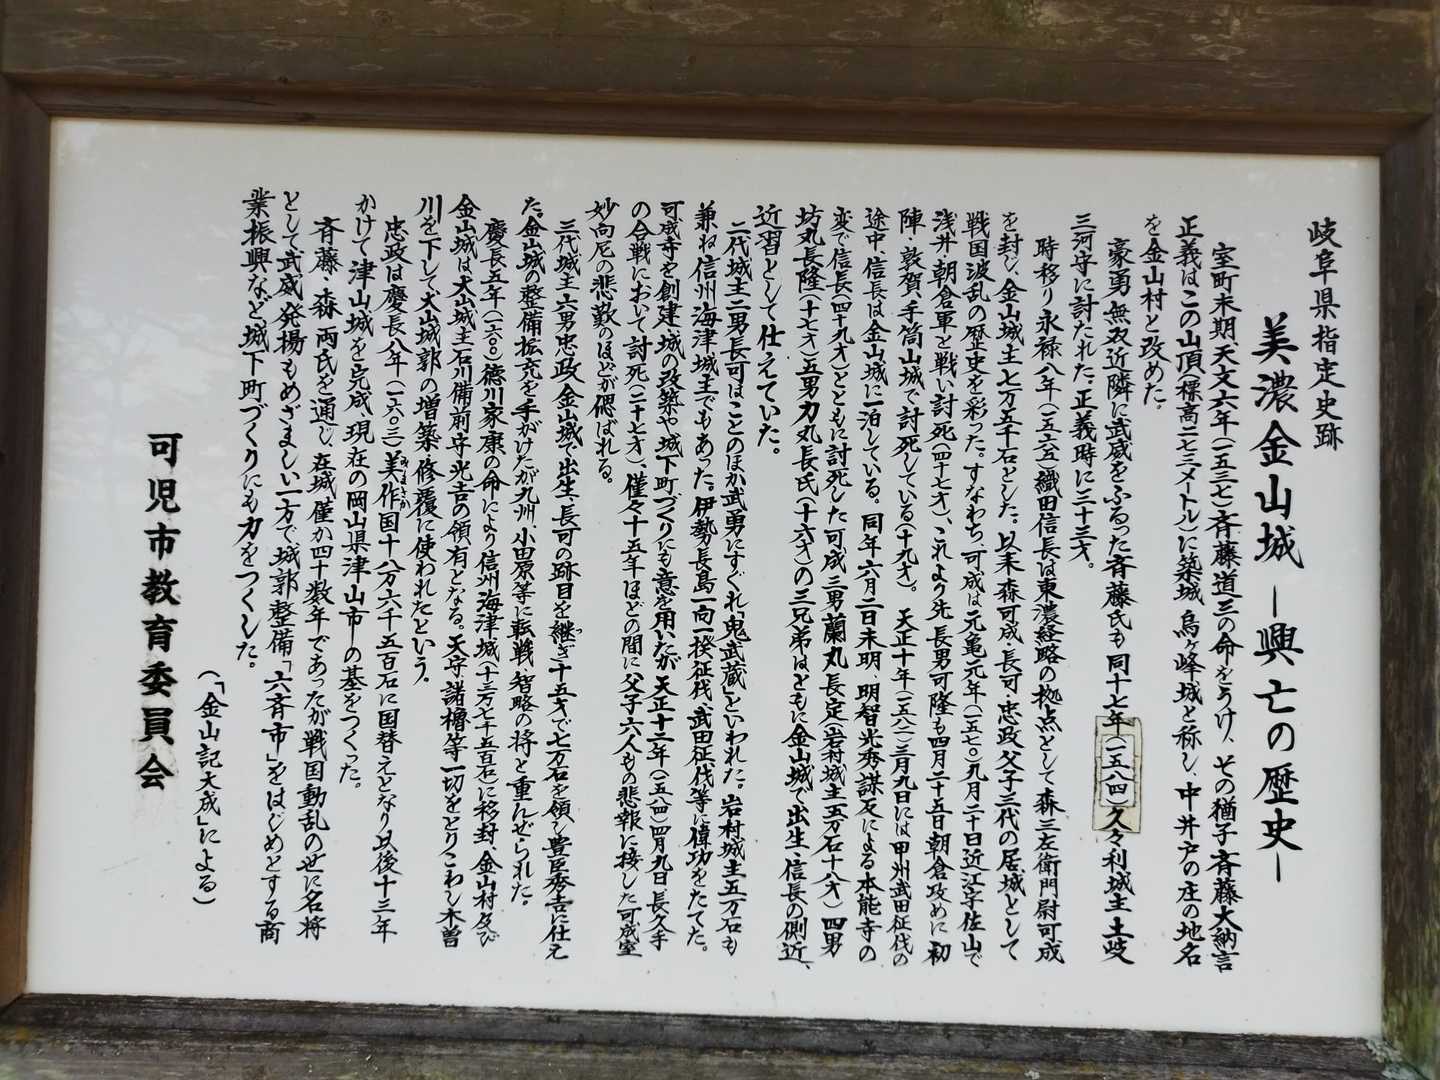 岐阜県指定史跡
美濃金山城―興亡の歴史―
室町末期天文六年(一五三七)斉藤道三の命をうけ、その猶子斉藤大納言
正義はこの山頂(標高二七三メートル)に築城、烏ヶ峰城と称し、中井戸の庄の地名
を金山村と改めた。
豪勇無双近隣に武威をふるった斉藤氏も同十七年(一五八四)久々利城主土岐
三河守に討たれた。正義時に三十三才。
時移り永禄八年(一五六五)織田信長は東濃経略の拠点として森三左衛門尉可成
を封じ、金山城主七万五千石とした。以来森可成、長可、忠政父子三代の居城として
戦国波乱の歴史を彩った。すなわち、可成は元亀元年(一五七〇)九月二十日近江宇佐山で
浅井・朝倉軍と戦い討死(四十七才)、これより先、長男可隆も四月二十五日朝倉攻めに初
陣・敦賀、手筒山城で討死している(十九才)。天正十年(一五八二)三月九日には甲州武田征伐の
途中、信長は金山城に一泊している。同年六月二日未明、明智光秀謀反による本能寺の
変で信長(四十九才)とともに討死した可成三男蘭丸長定(岩村城主五万石十八才)四男
坊丸長隆(十七才)五男力丸長氏(十六才)の三兄弟はともに金山城で出生、信長の側近、
近習として仕えていた。
二代城主二男長可はことのほか武勇にすぐれ「鬼武蔵」といわれた。岩村城主五万石も
兼ね信州海津城主でもあった。伊勢長島一向一揆征伐、武田征伐等に偉功をたてた。
可成寺を創建、城の改築や城下町づくりにも意を用いたが天正十二年(一五八四)四月九日長久手
の合戦において討死(二十七才)、僅々十五年ほどの間に父子六人もの悲報に接した可成室
妙向尼の悲歎のほどが偲ばれる。
三代城主六男忠政金山城で出生、長可の跡目を継ぎ十五才で七万石を領し豊臣秀吉に仕え
た。金山城の整備拡充を手がけたが九州、小田原等に転戦、智略の将と重んぜられた。
慶長五年(一六〇〇)徳川家康の命により信州海津城(十三万七千五百石)に移封、金山村及び
金山城は犬山城主石川備前守光吉の領有となる。天守諸櫓等一切をとりこわし木曽
川を下して犬山城郭の増築・修覆に使われたという。
忠政は慶長八年(一六〇三)美作国十八万六千五百石に国替えとなり以後十三年
かけて津山城を完成、現在の岡山県津山市の基をつくった。
斉藤・森両氏を通じ、在城僅か四十数年であったが戦国動乱の世に名将
として武威発揚もめざましい一方で、城郭整備「六斉市」をはじめとする商
業振興など城下町づくりにも力をつくした。
(「金山記大成」による)
可児市教育委員会